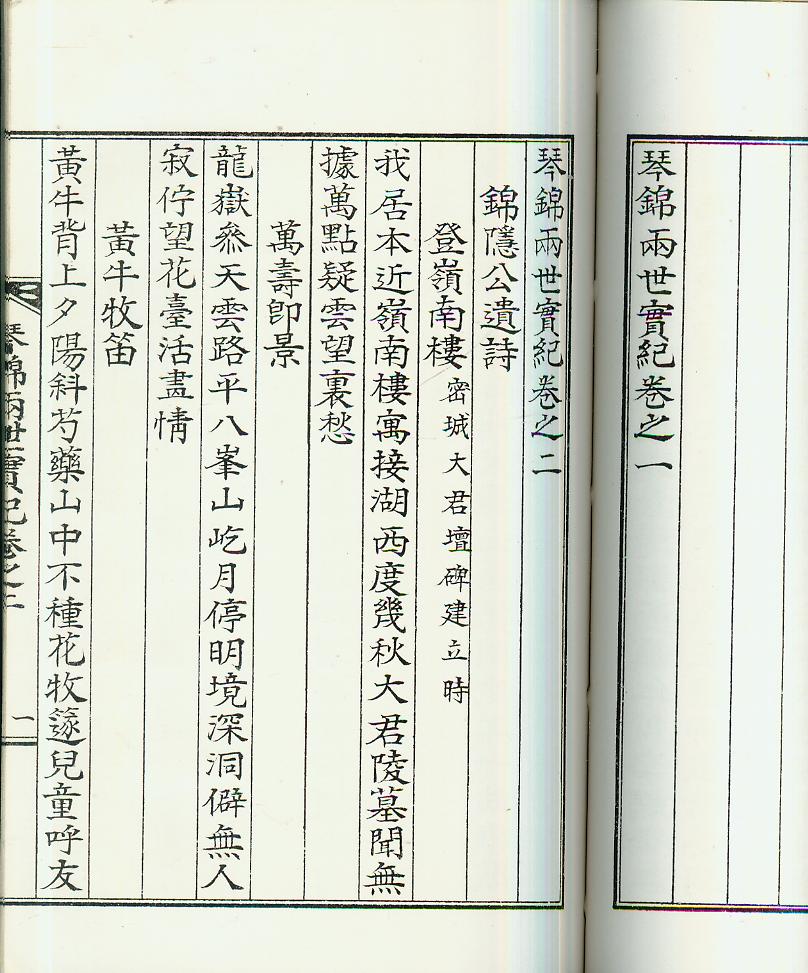 琴錦兩世實紀卷之一
琴錦兩世實紀卷之二
錦隱公遺詩
登嶺南樓 密城大君壇碑建立時
我居本近嶺南樓寓接湖西度幾秋大君陵墓聞無
據萬點疑雲望裏愁
萬壽卽景
龍嶽叅天雲路平八峯山屹月停明境深洞僻無人
寂佇望花臺活畫情
黃牛牧笛
黃牛背上夕陽斜芍藥山中不種花牧篴兒童呼友
琴錦兩世實紀卷之二
一